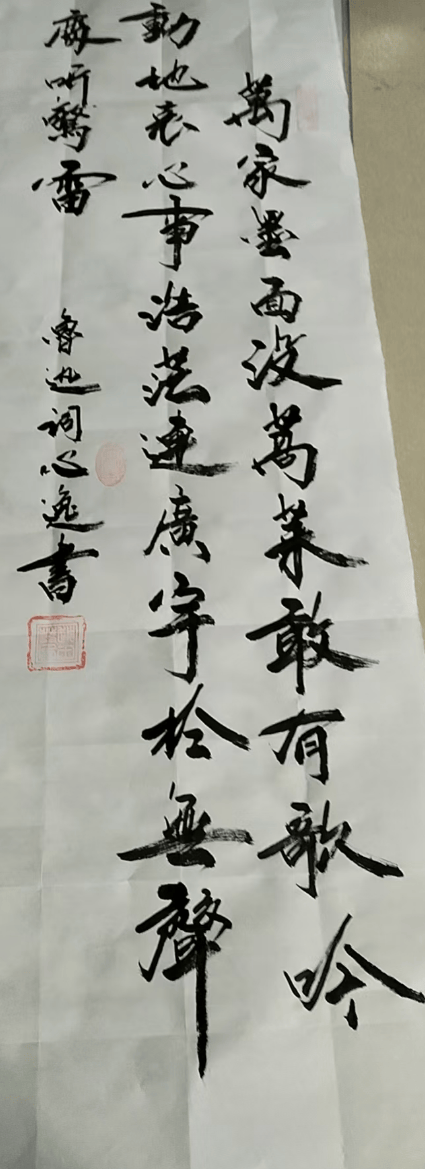 萬家墨面没蒿莱敢有歌吟
動地哀心事浩茫連廣宇於無聲
處听驚雷
魯迅詞心逸書